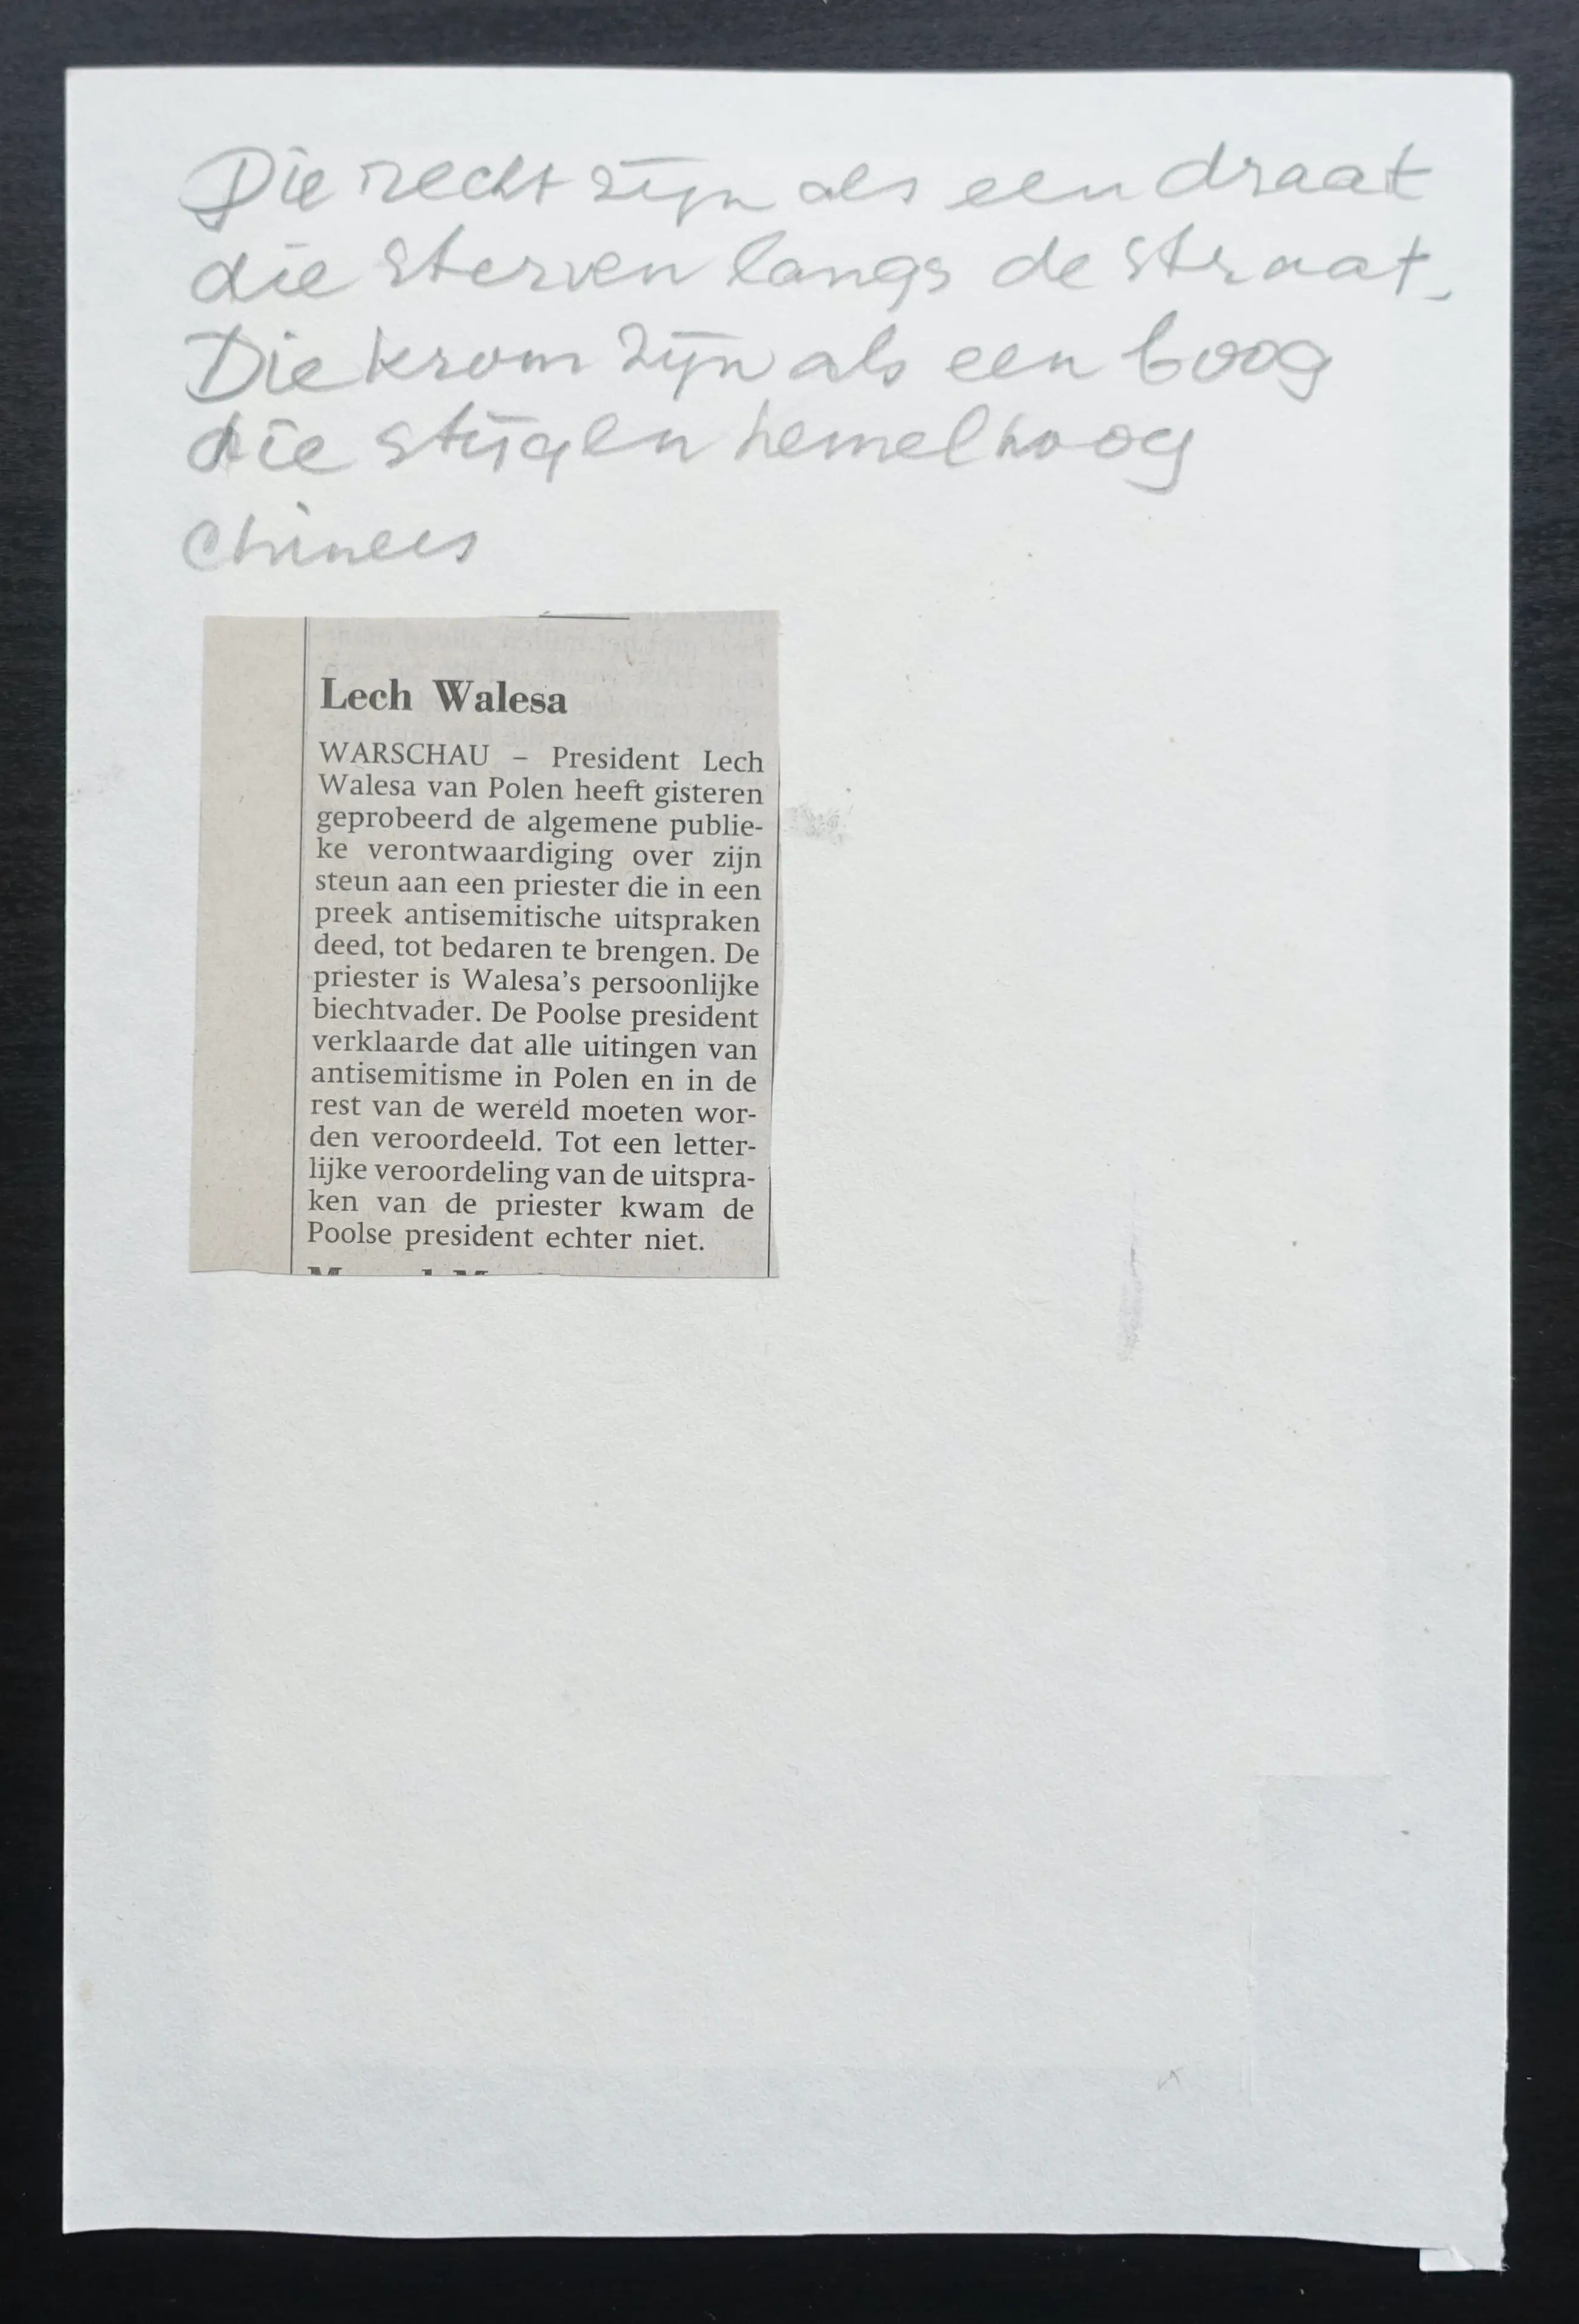 Die recht zijn als een draat
die sterven langs de straat.
Die krom zijn als een boog
die stijgen hemelhoog
Chinees
Lech Walesa
WARSCHAU – President Lech
Walesa van Polen heeft gisteren
geprobeerd de algemene publie-
ke verontwaardiging over zijn
steun aan een priester die in een
preek antisemitische uitspraken
deed, tot bedaren te brengen. De
priester is Walesa's persoonlijke
biechtvader. De Poolse president
verklaarde dat alle uitingen van
antisemitisme in Polen en in de
rest van de wereld moeten wor-
den veroordeeld. Tot een letter-
lijke veroordeling van de uitspra-
ken van de priester kwam de
Poolse president echter niet.